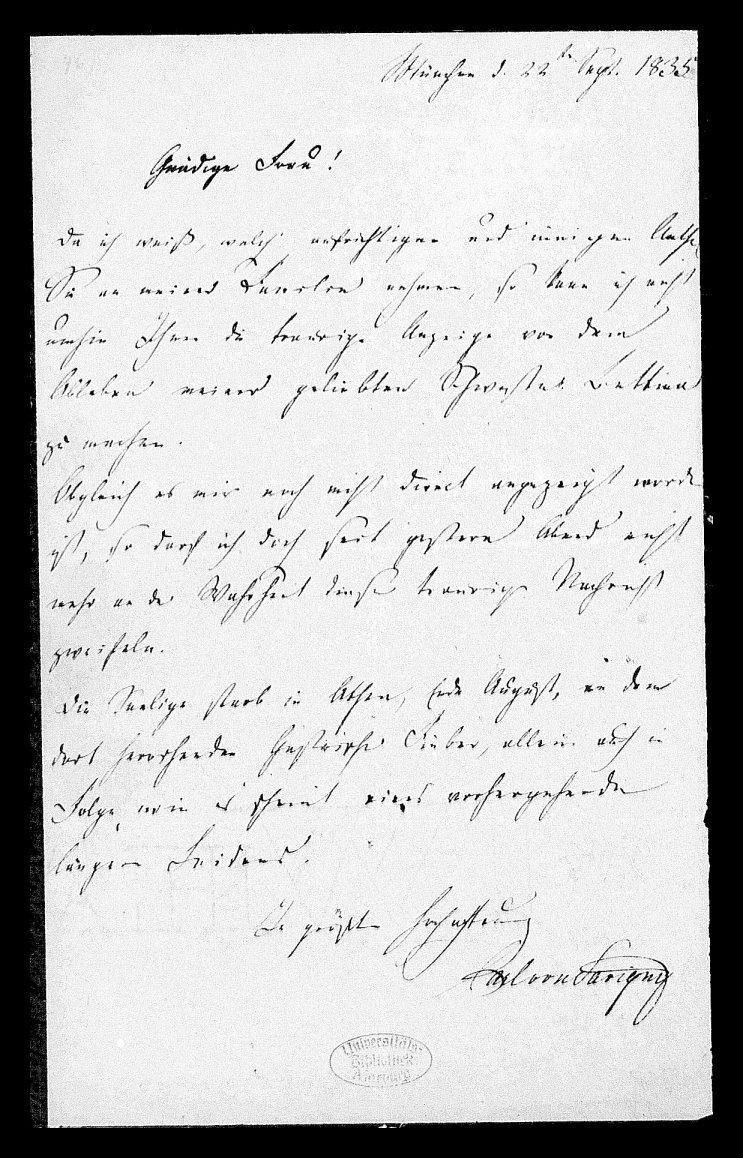 München d. 22ten Sept. 1835
Gnädige Frau!
Da ich weiß, welch' aufrichtigen und innigen Anthe
Sie an meinen nehmen, so kann ich nicht
umhin Ihnen die traurige Anzeige von dem
Ableben meiner geliebten Schwester Bettina
zu machen.
Obgleich es mir noch nicht direct angezeigt worden
ist, so darf ich doch seit gestern Abend nicht
mehr an der Wahrheit dieser traurigen Nachricht
zweifeln.
Die Seelige starb in Athen, Ende August, an dem
dort herrschenden Gastrischen Fieber, allein auch in
Folge, wie es scheint eines vorhergehenden
langen Leidens.
größter Hochachtung
Karl von Savigny
Universitäts-
Bibliothek
Marburg